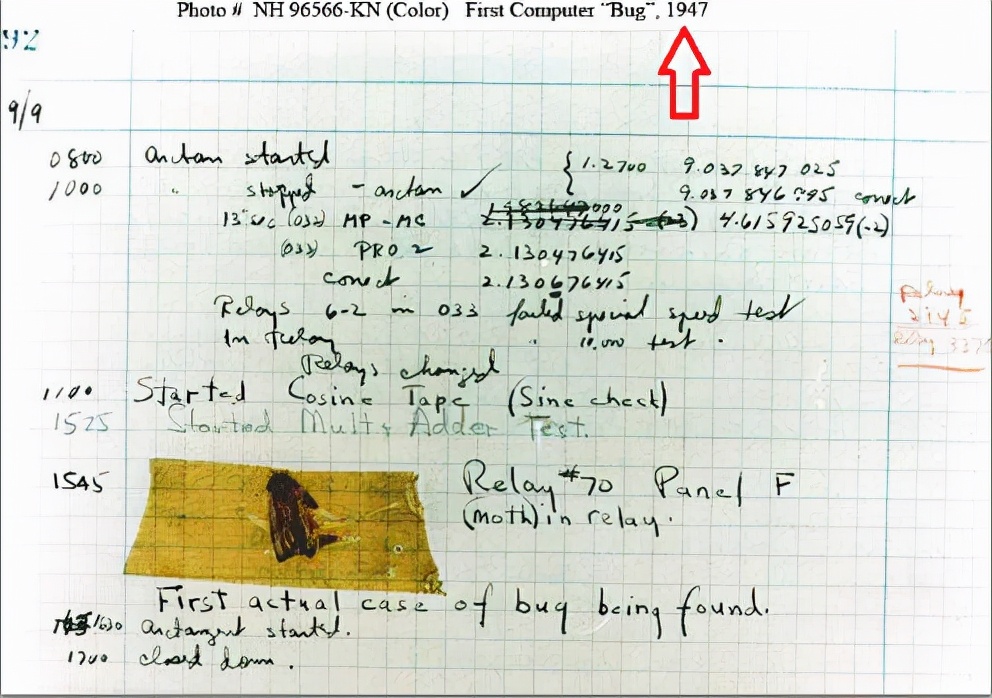 Photo # NH 96566-KN (Color) First Computer "Bug", 1947
92
9/9
0800 arctan started { 1.2700 9.037 847 025
1000 " stopped - arctan ✓ 9.037 846 995 conect
13" sec (032) MP - MC 2.130476415 4.615925059(-2)
(033) PRO 2 2.130476415
conect 2.130676415
Relays 6-2 in 033 failed special speed test
In Relay " 10.000 test .
Relay
2145
Relay 3370
Relays changed
1100 Started Cosine Tape (Sine check)
1525 Started Mult+ Adder Test.
1545 Relay #70 Panel F
(moth) in relay.
First actual case of bug being found.
1630 arctangent started.
1700 closed down .